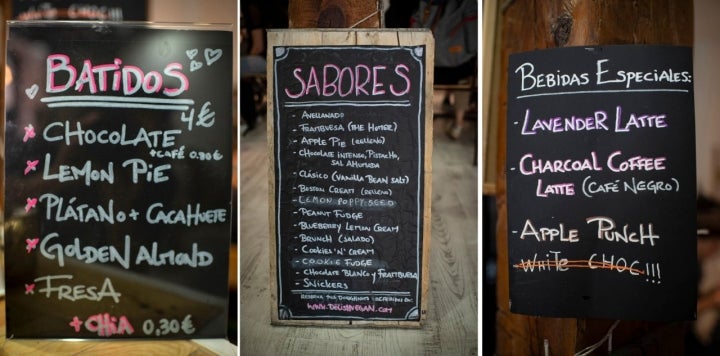 BATIDOS
4€
CHOCOLATE
+CAFÉ 0.80€
LEMON PIE
PLÁTANO + CACAHUETE
GOLDEN ALMOND
FRESA
+ CHIA 0,30€
SABORES
- AVELLANADO
- FRAMBUESA (THE HOMER)
- APPLE PIE (RELLENO)
- CHOCOLATE INTENSO, PISTACHO,
SAL AHUMADA
- CLÁSICO (VANILLA BEAN SALT)
- BOSTON CREAM (RELLENO)
- LEMON POPPY SEED
- PEANUT FUDGE
- BLUEBERRY LEMON CREAM
- BRUNCH (SALADO)
- COOKIES 'N' CREAM
- COOKIE FUDGE
- CHOCOLATE BLANCO Y FRAMBUESA
- SNICKERS
RESERVA TUS DOUGHNUTS
WWW.DELISHVEGAN.COM
BEBIDAS ESPECIALES:
- LAVENDER LATTE
- CHARCOAL COFFEE
LATTE (CAFÉ NEGRO)
- APPLE PUNCH
- WHITE CHOC!!!